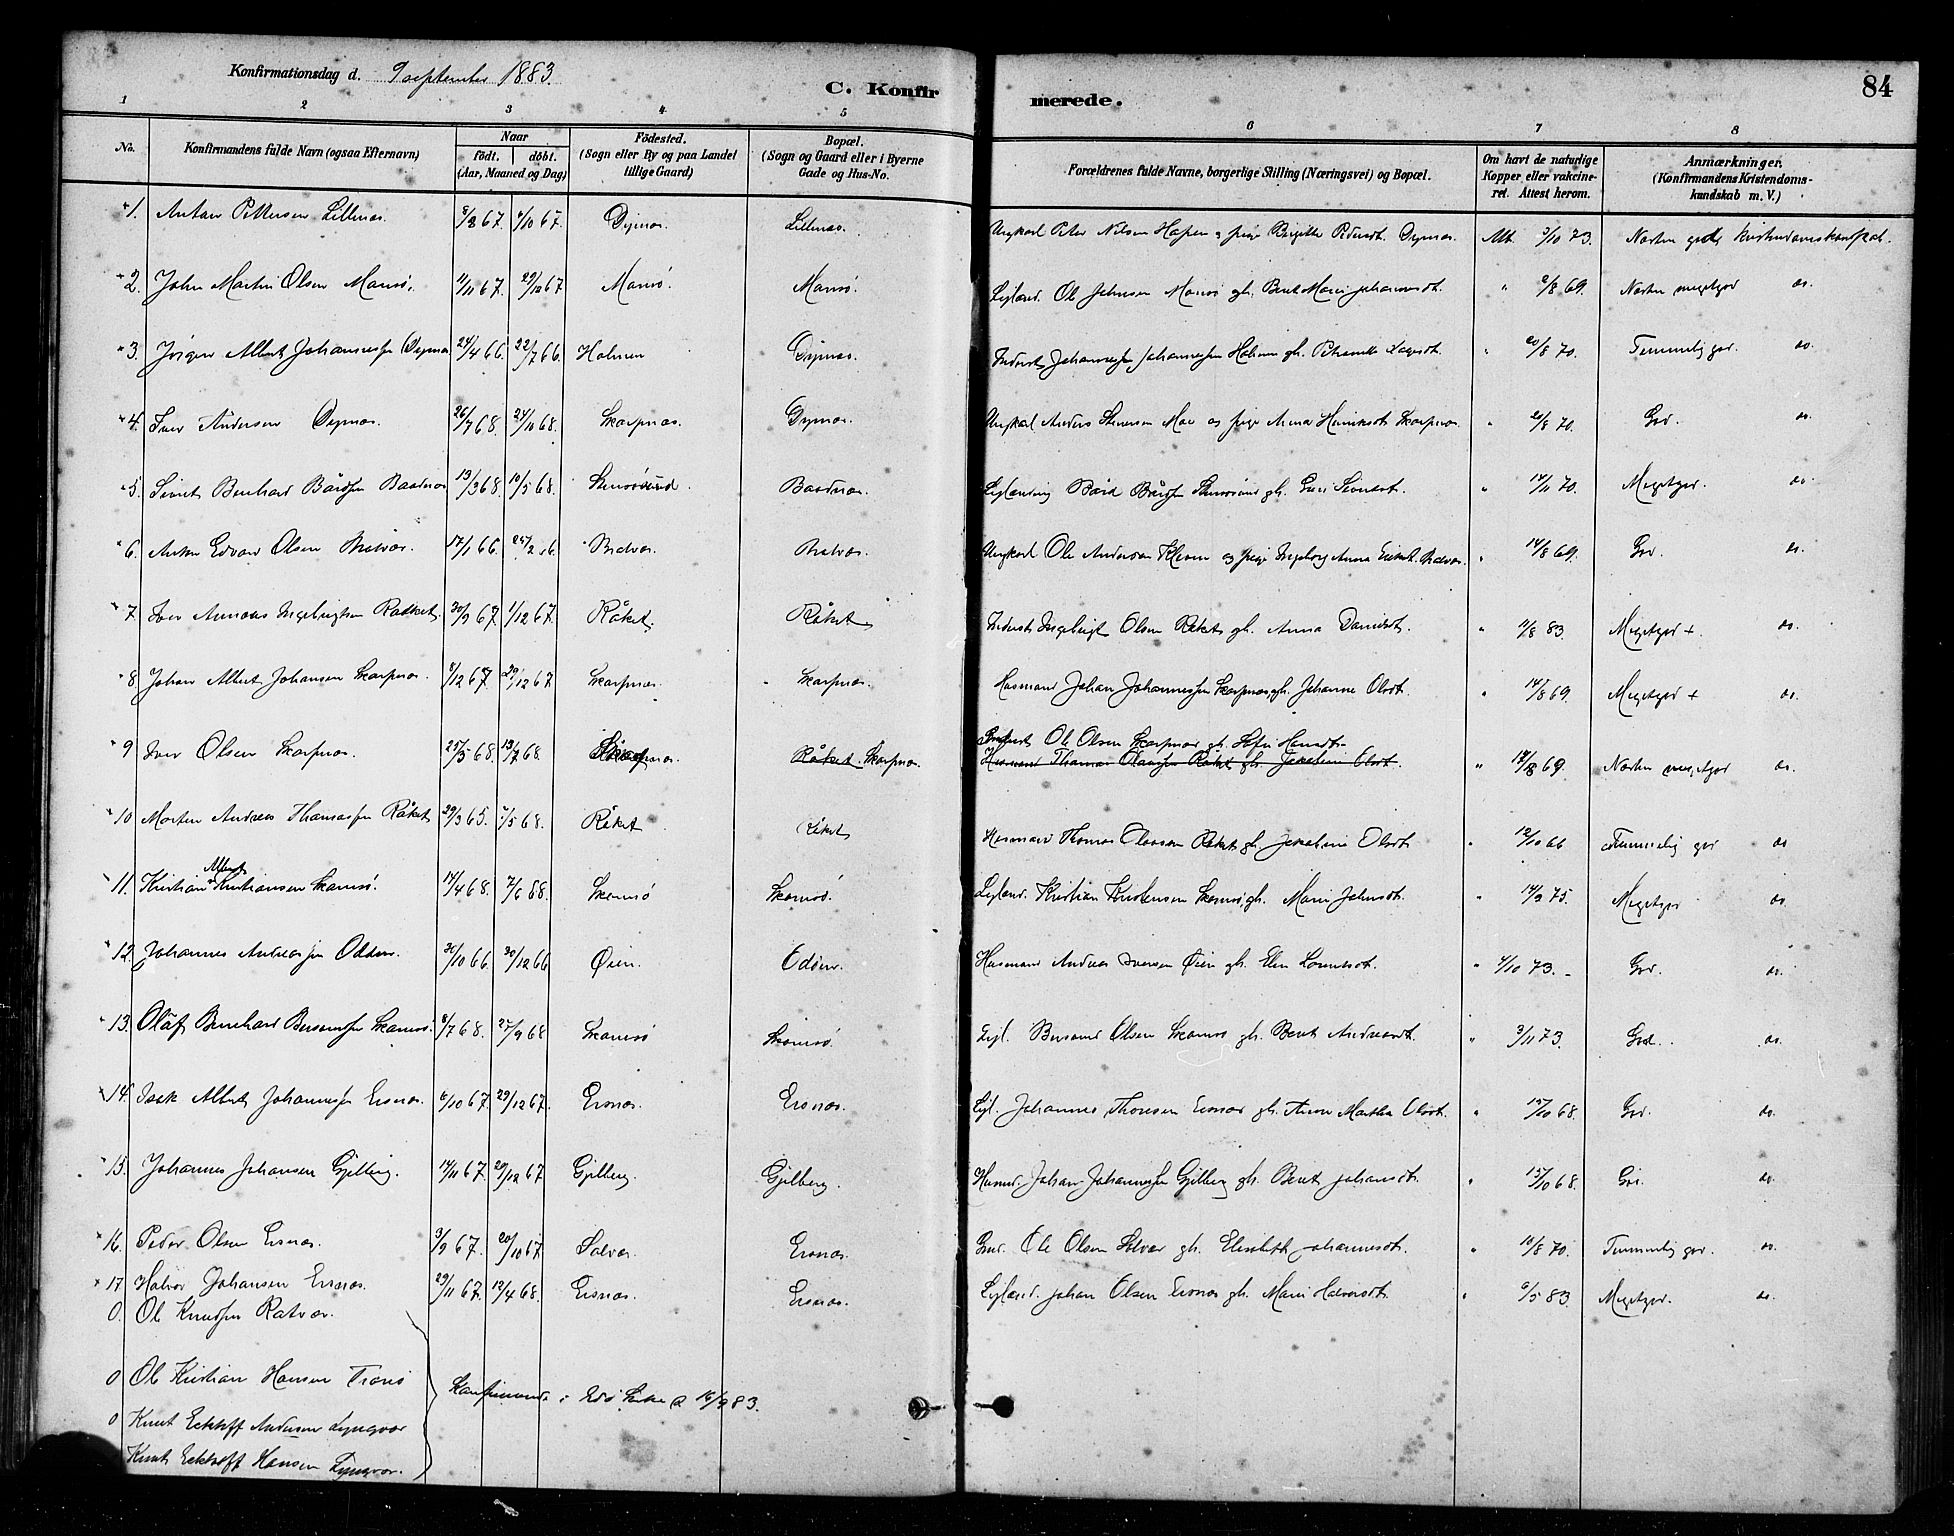 Konfirmationsdag d. 9 september 1883.
C. Konfirmerede.
84
1 2 3 4 5 6 7 8
No. Konfirmandens fulde Navn (ogsaa Efternavn) Naar födt. döbt. (Aar, Maaned og Dag) Födested. (Sogn eller By og paa Landet tillige Gaard) Bopæl. (Sogn og Gaard eller i Byerne Gade og Hus-No. Forældrenes fulde Navne, borgerlige Stilling (Næringsvei) og Bopæl. Om havt de naturlige Kopper eller vakcineret. Attest herom. Anmærkninger. (Konfirmandens Kristendomskundskab m. V.)
1. Anton Pettersen Lillenæs. 67. /10 67. Dyrnæs. Lillenæs. Ungkarl Peter Nilsen og pige Brigitte Pedersdt. Dyrnæs. Att. /10 73. Næsten god Kristendomskundskab.
2. John Martin Olsen 11/11 67. 29/12 67 Leyland. Ole Johnsen gh. Berit Marie Johannesdt. " 2/8 69. Næsten megetgod do.
3. Jörgen Albert Johannessen Dyrnæs 24/4 66. 22/7 66. Holmen Dyrnæs. Inderst Johannes Johannessen Holmen gh. Petranella " 20/8 70. Temmelig god. do.
4. Iver Andersen Dyrnæs. 26/7 68. 24/11 68. Skarpnæs. Dyrnæs. Ungkarl Anders Moe og pige Anna Henriksdt. Skarpnæs. " 20/8 70. God. do.
5. Sivert Bernhard Bårdsen Baadnæs 13/3 68. 10/5 68. Baadnæs. Leylænding Bård Bårdsen gh. Guri Sivertsdt. " 14/11 70. Megetgod. do.
6. Anton Edvard Olsen 17/1 66. 25/2 66. Ungkarl Ole Andersen og pige Ingeborg Anna " 14/8 69. God. do.
7. Iver Andreas Ingebrigtsen Raaket. 30/9 67. 1/12 67. Råket. Råket Inderst Ingebrigt Olsen Råket gh. Anna Danielsdt. " 11/8 83. Megetgod + do.
8 Johan Albert Johansen Skarpnæs. 8/12 67. 29/12 67 Skarpnæs. Skarpnæs. Husmand Johan Johannessen Skarpnæs gh. Johanne Olsdt. " 14/8 69. Megetgod + do.
9 Iver Olsen Skarpnæs. 25/5 68. 19/7 68. Skarpnæs. Råket Skarpnæs. Ole Olsen Skarpnæs gh. Sofie
Husmand Thomas Olaussen Råket gh. Jakobine Olsdt. " 69. Næsten megetgod do.
10 Morten Andreas Thomassen Råket 29/3 65. /5 68. Råket Råket Husmand Thomas Olaussen Råket gh. Jakobine Olsdt " 12/10 66 Temmelig god do
11. Kristian Albert Kristiansen Skarsö. 14/4 68. 7/6 68. Skarsö Skarsö. Leyland. Kristian Kristensen Skarsö gh. Marie Johnsdt. " 14/9 75. Megetgod do.
12. Johannes Andreassen Odden. 31/10 66. 30/12 66 Øien. Odden. Husmand Andreas Iversen Øien gh. Elen Lorentsdt. " 4/10 73. - God. do.
13. Olaf Bernhard Bersvendsen Skarsö. 8/7 68. 27/9 68 Skarsö Skarsö. Leyl. Bersvend Olsen Skarsö gh. Berit Andreasdt. " 3/11 73. God. do.
14. Isak Albert Johannessen Ersnæs. 6/10 67. 29/12 67. Ersnæs. Ersnæs. Leyl. Johannes Thoresen Ersnæs gh. Anne Martha Olsdt. " 15/10 68. God. do.
15. Johannes Johansen Gjelberg. 14/11 67. 29/12 67 Gjelberg. Gjelberg. Husmd. Johan Johannessen Gjelberg gh. Berit Johansdt. " 15/10 68. God. do.
16. Peder Olsen Ersnæs. 3/9 67. 20/10 67. Solvær. Ersnæs. Ole Olsen Solvær gh. Elisabeth Johannesdt. " 10/8 70. Temmelig god. do.
17 Halvor Johansen Ersnæs. 29/11 67. 12/4 68. Ersnæs. Ersnæs. Leyland. Johan Olsen Ersnæs gh. Marie Halvorsdt. " /5 83. Megetgod. do.
0. Ole Knudsen Ratvær.
0 Ole Kristian Hansen Konfirmerede i Edö Kirke d 16/9 83.
0 Knut Eckhoff Andersen Lyngvær
Knut Eckhoff Hansen Lyngvær.